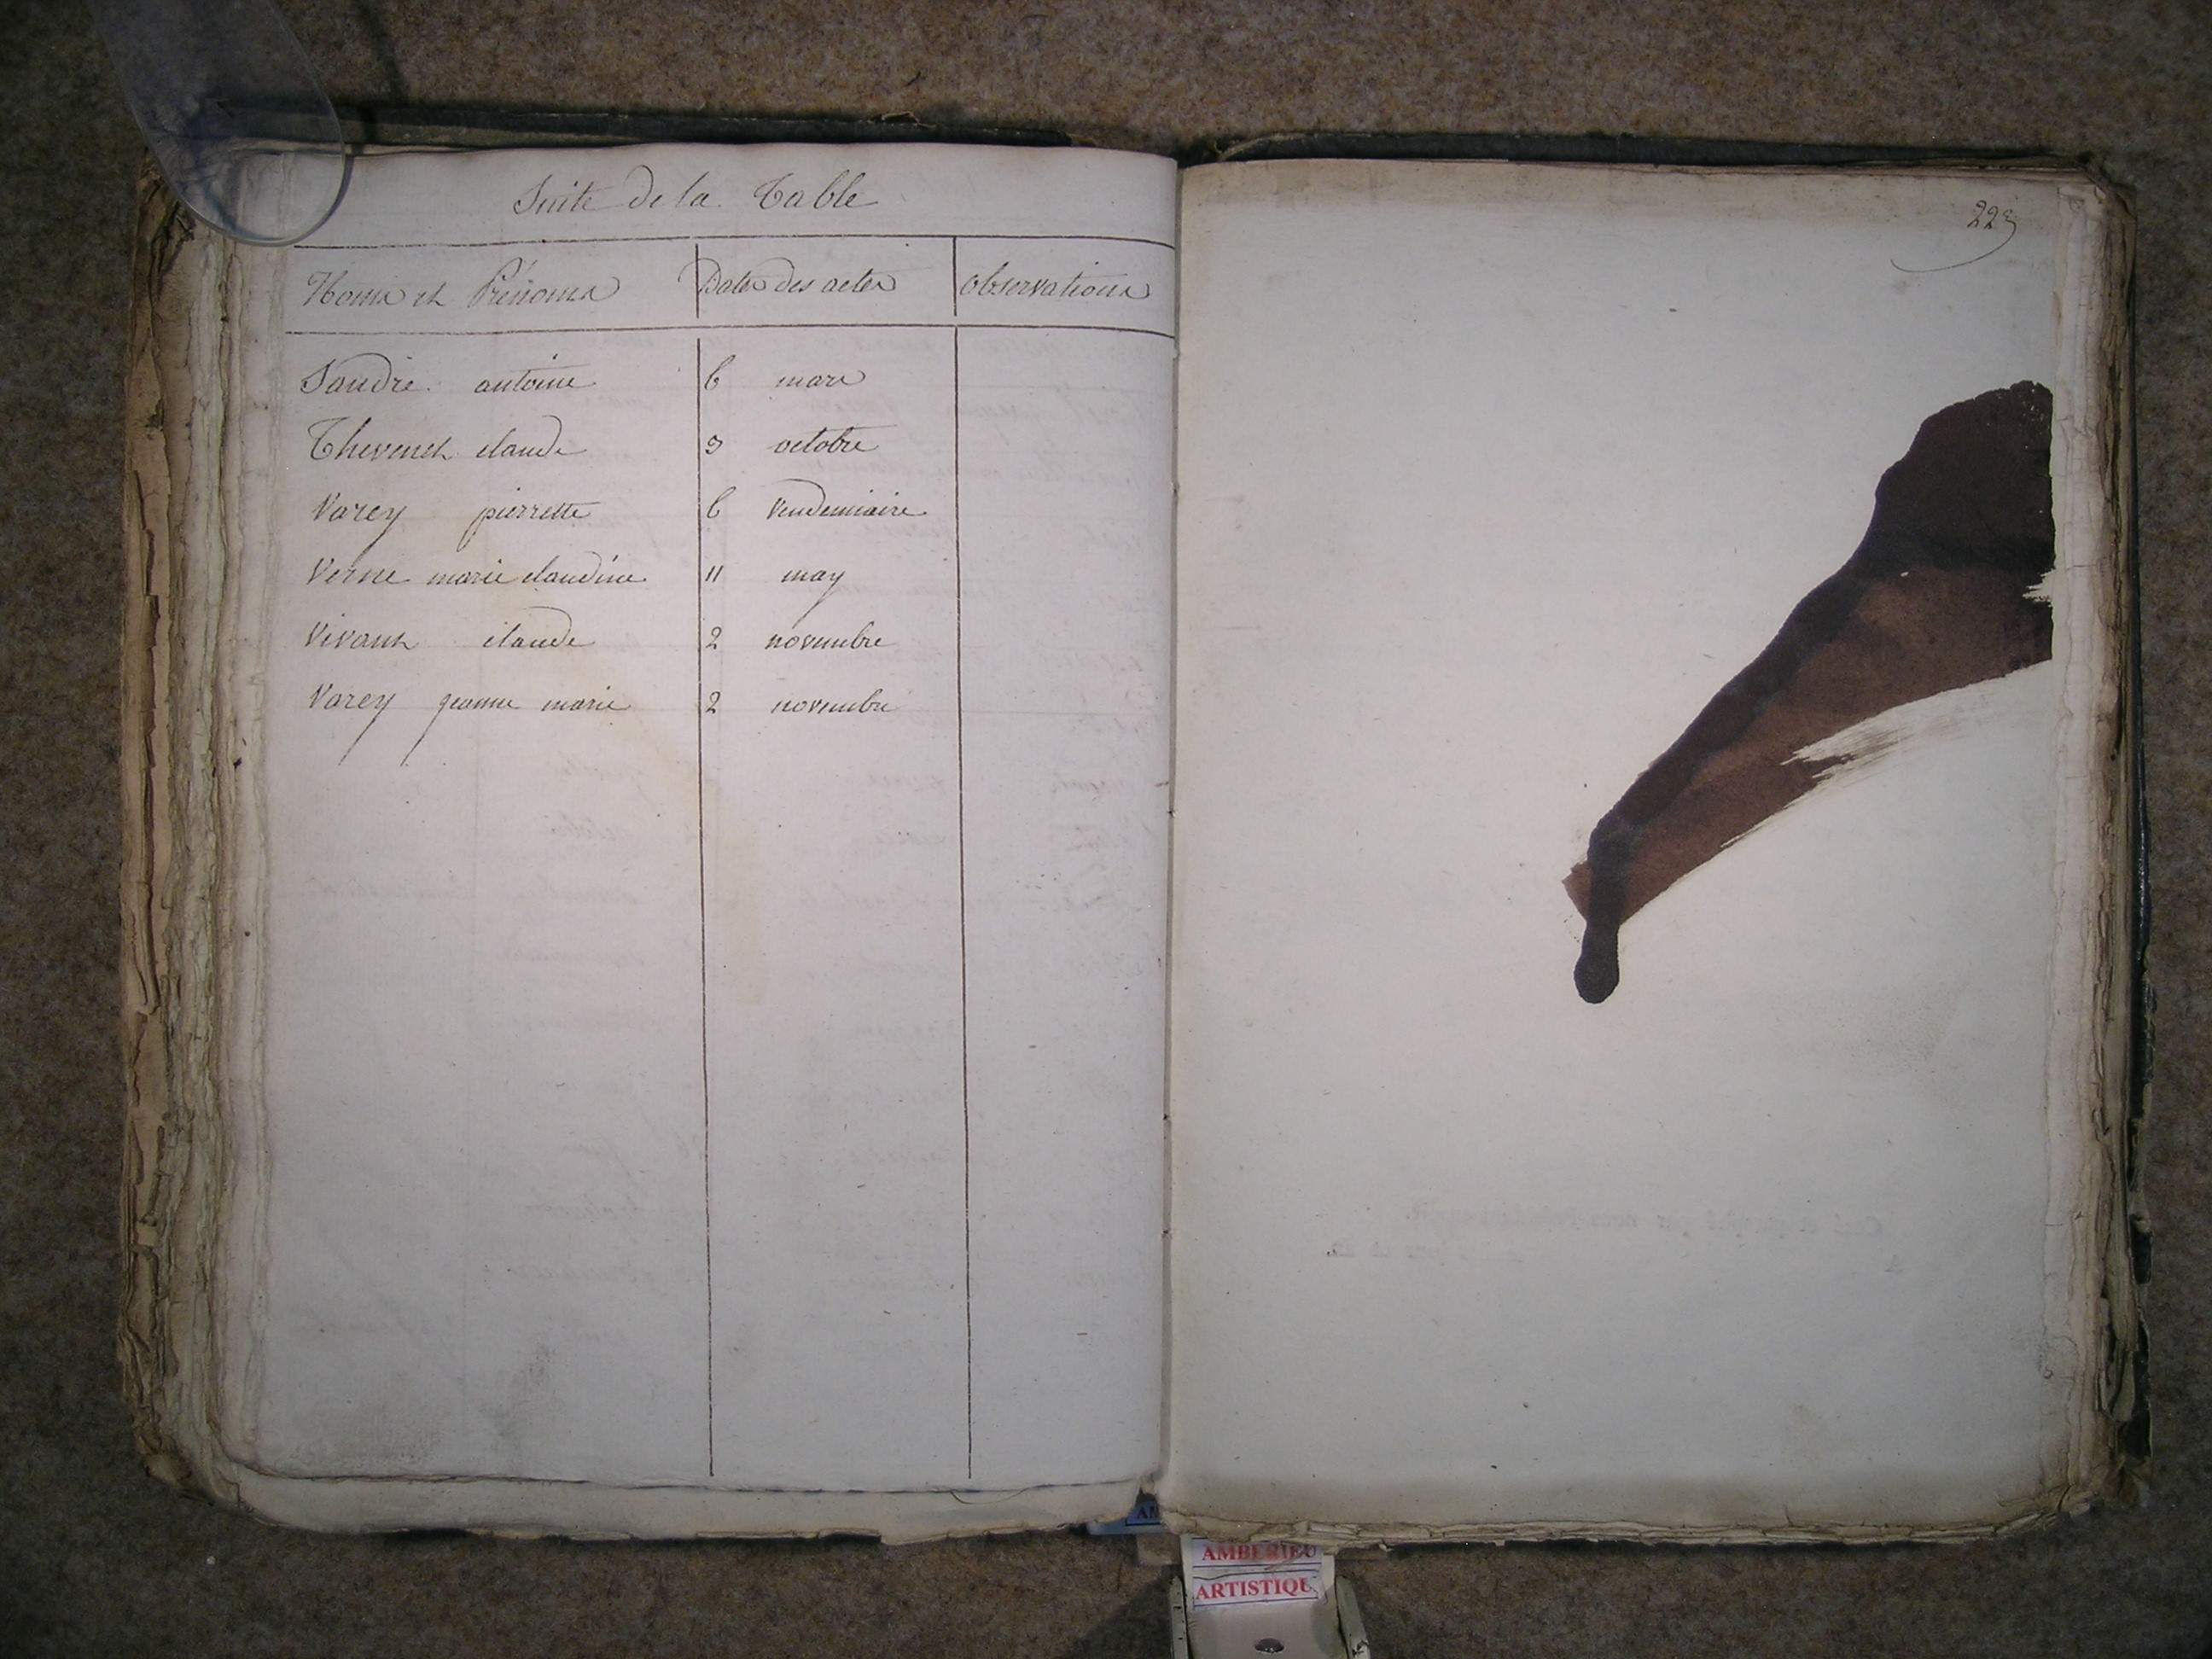 Suite de la Table
Noms et Prénoms Dates des actes observations
Sandre antoine 6 mars
Thevenet claude 3 octobre
Varey pierrette 6 Vendemiaire
Verne marie claudine 11 may
Vivant claude 2 novembre
Varey jeanne marie 2 novembre
AMBERIEU
ARTISTIQU